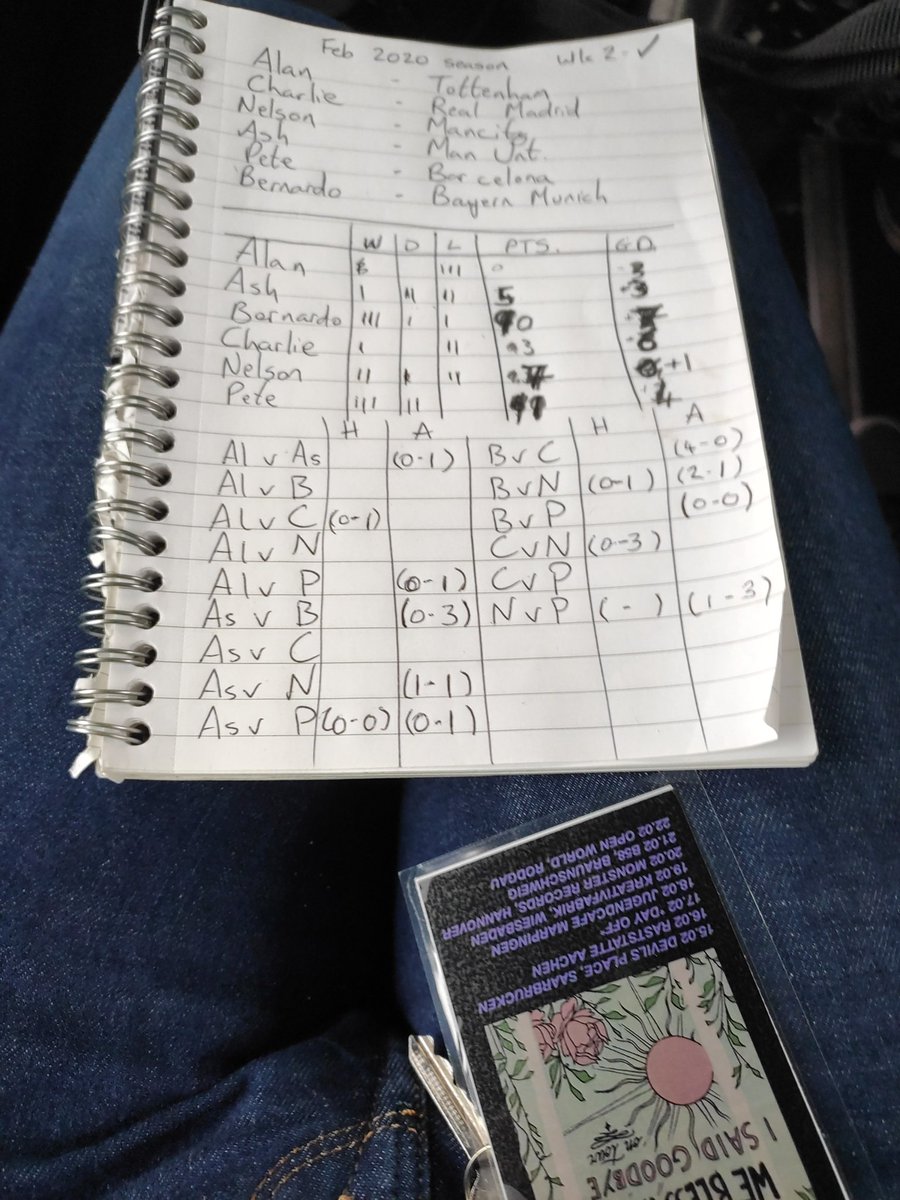 Feb 2020 season Wk 2 - ✓
Alan - Tottenham
Charlie - Real Madrid
Nelson - Mancity
Ash - Man Unt.
Pete - Barcelona
Bernardo - Bayern Munich
W D L PTS. G.D.
Alan III
Ash I II II 5 -3
Bernardo III I I 0
Charlie I II 3
Nelson II II +1
Pete III II
H A H A
Al v As (0-1) B v C (4-0)
Al v B B v N (0-1) (2-1)
Al v C (0-1) B v P (0-0)
Al v N C v N (0-3)
Al v P (0-1) C v P
As v B (0-3) N v P ( - ) (1-3)
As v C
As v N (1-1)
As v P (0-0) (0-1)
15.02 DEVILS PLACE, SAARBRUCKEN
16.02 RASTSTÄTTE AACHEN
17.02 "DAY OFF"
18.02 JUGENDCAFE MARPINGEN
19.02 KREATIVFABRIK, WIESBADEN
20.02 MONSTER RECORDS, HANNOVER
21.02 B58, BRAUNSCHWEIG
22.02 OPEN WORLD, RODGAU
on Tour
I SAID GOODBYE
WE